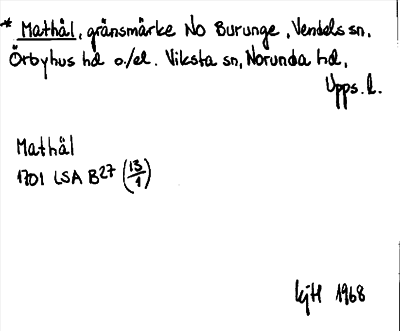 * Mathål, gränsmärke NO Burunge, Vendels sn,
Örbyhus hd o/el. Viksta sn, Norunda hd,
Upps. l.
Mathål
1701 LSA B27 (13/1)
KjH 1968